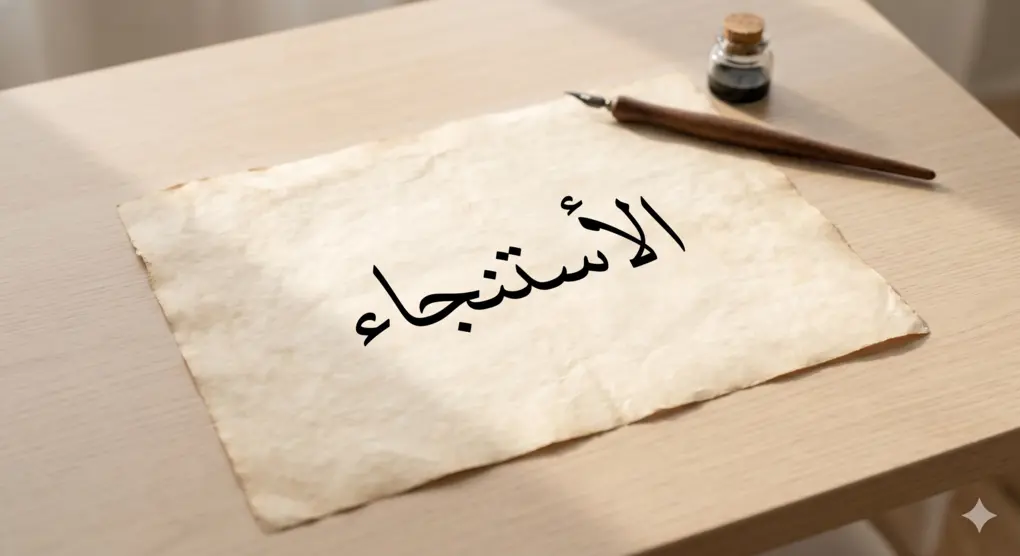 الأستنجاء